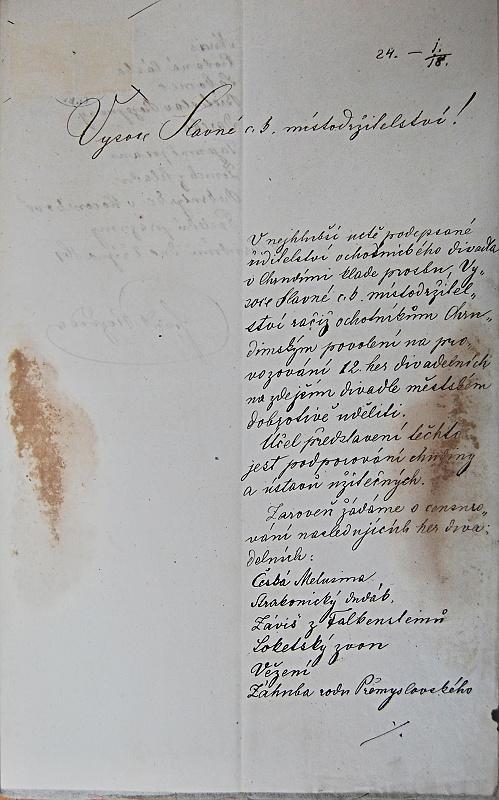 24. — 1/18.
Vysoce Slavné c. k. místodržitelství!
V nejhlubší uctě podepsané
ředitelství ochotnického divadla
v Chrudimi klade prosbu, Vy-
soce Slavné c. k. místodržitel-
ství račiž ochotníkům Chru-
dimským povolení na pro-
vozování 12. her divadelních
na zdejším divadle městském
dobrotivě uděliti.
Účel představení těchto
jest podporování chudiny
a ústavů užitečných.
Zároveň žádáme o censuro-
vání nasledujících her diva-
delních:
Česká Melusina
Strakonický dudák.
Záviš z Falkensteinů
Loketský zvon
Vězení
Záhuba rodu Přemyslovského
./.